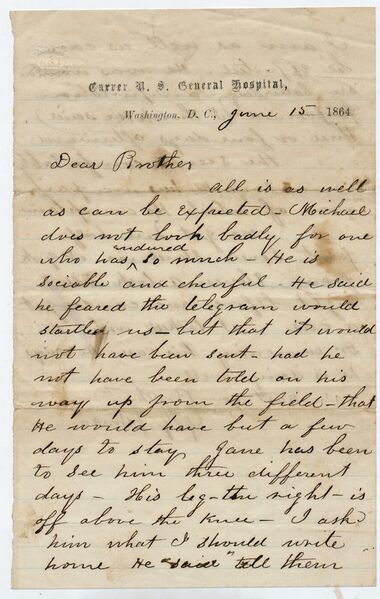 Carver U. S. General Hospital,
Washington, D. C., June 15 1864.
Dear Brother
all is as well
as can be expected - Michael
does not look badly for one
indured
who has ^ so much - He is
sociable and cheerful - He said
he feared the telegram would
startled us - but that it would
not have been sent - had he
not have been told on his
way up from the field - that
He would have but a few
days to stay Jane has been
to see him three different
days - His leg - the right - is
off above the knee - I ask
him what I should write
home He "said" tell them